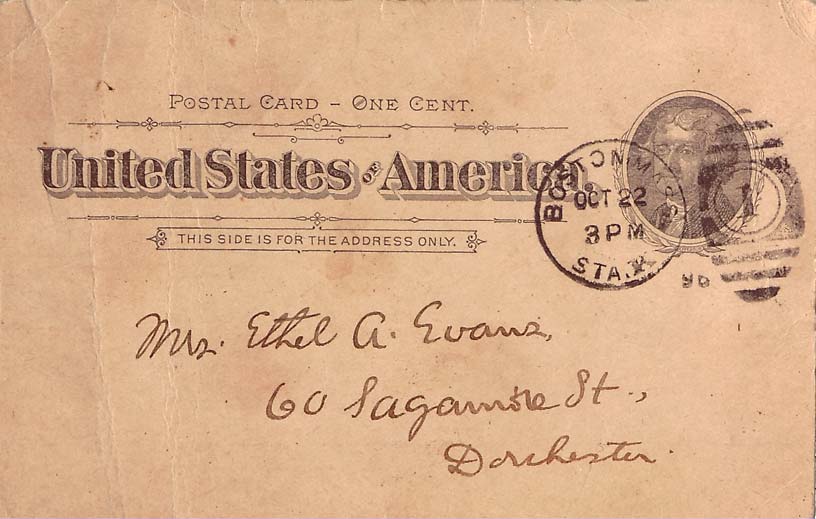 POSTAL CARD – ONE CENT.
United States of America.
THIS SIDE IS FOR THE ADDRESS ONLY.
BOSTON MASS.
OCT 22
3 PM
STA.
96
1
Mrs. Ethel A. Evans,
60 Sagamore St.,
Dorchester.